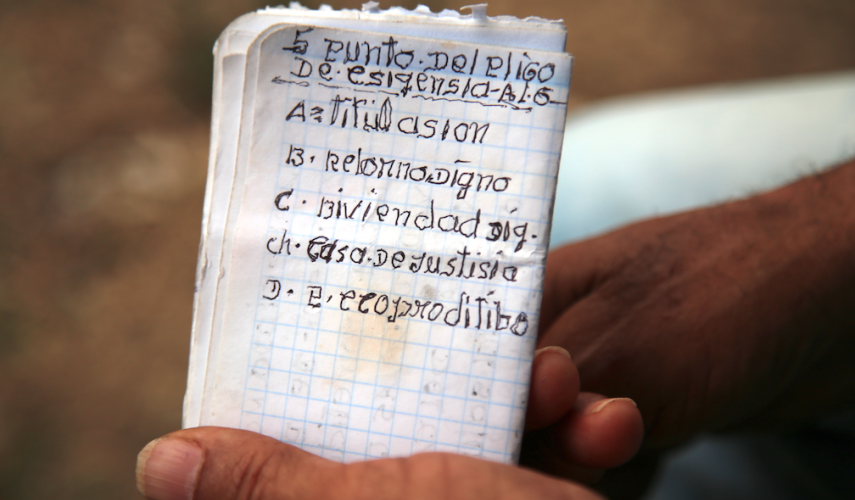 5 punto.Del pligo
De.esigensia-Al.G
A=titulasion
B. Retorno Digno
C. Biviendad Dig.
ch. casa.De Justisia
D. P. ecoproditibo